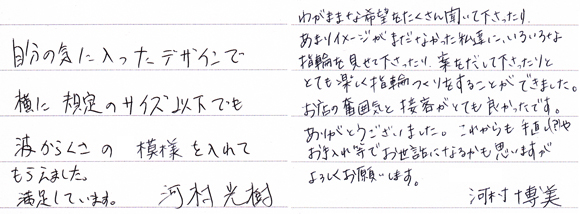 自分の気に入ったデザインで
横に規定のサイズ以下でも
波からくさの模様を入れて
もらえました。
満足しています。 河村光樹
わがままな希望をたくさん聞いて下さったり、
あまりイメージがまだなかった私達に、いろいろな
指輪を見せて下さったり、案をだして下さったりと
とても楽しく指輪つくりをすることができました。
お店の雰囲気と接客がとても良かったです。
ありがとうございました。これからも手直しや
お手入れ等でお世話になるかも思いますが
よろしくお願いします。
河村博美